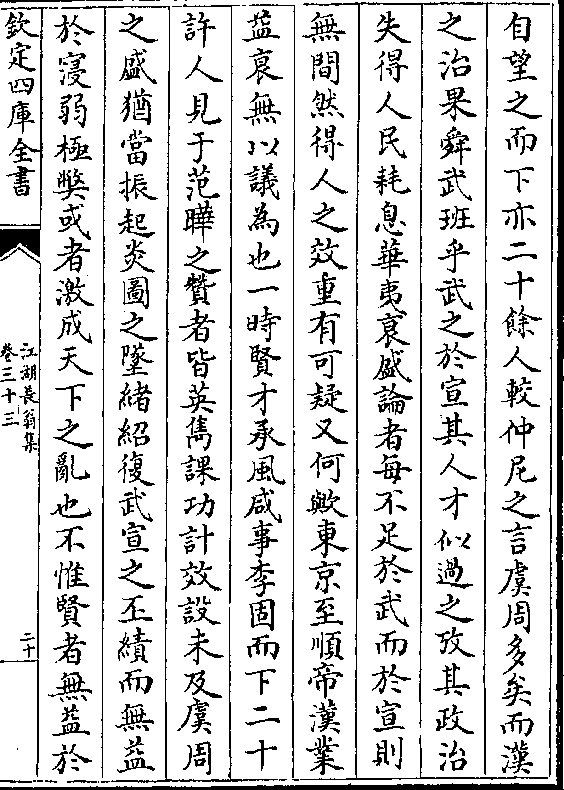 自望之而下亦二十餘人較仲尼之言虞周多矣而漢
之治果舜武班乎武之於宣其人才似過之攷其政治
失得人民耗息華夷衰盛論者每不足於武而於宣則
無間然得人之效重有可疑又何歟東京至順帝漢業
益衰無以議為也一時賢才承風咸事李固而下二十
許人見于范曄之贊者皆英雋課功計效設未及虞周
之盛猶當振起炎圖之墜緒紹復武宣之丕績而無益
於寖弱極獘或者激成天下之亂也不惟賢者無益於
欽定四庫全書
江湖長翁集
卷三十三
二十